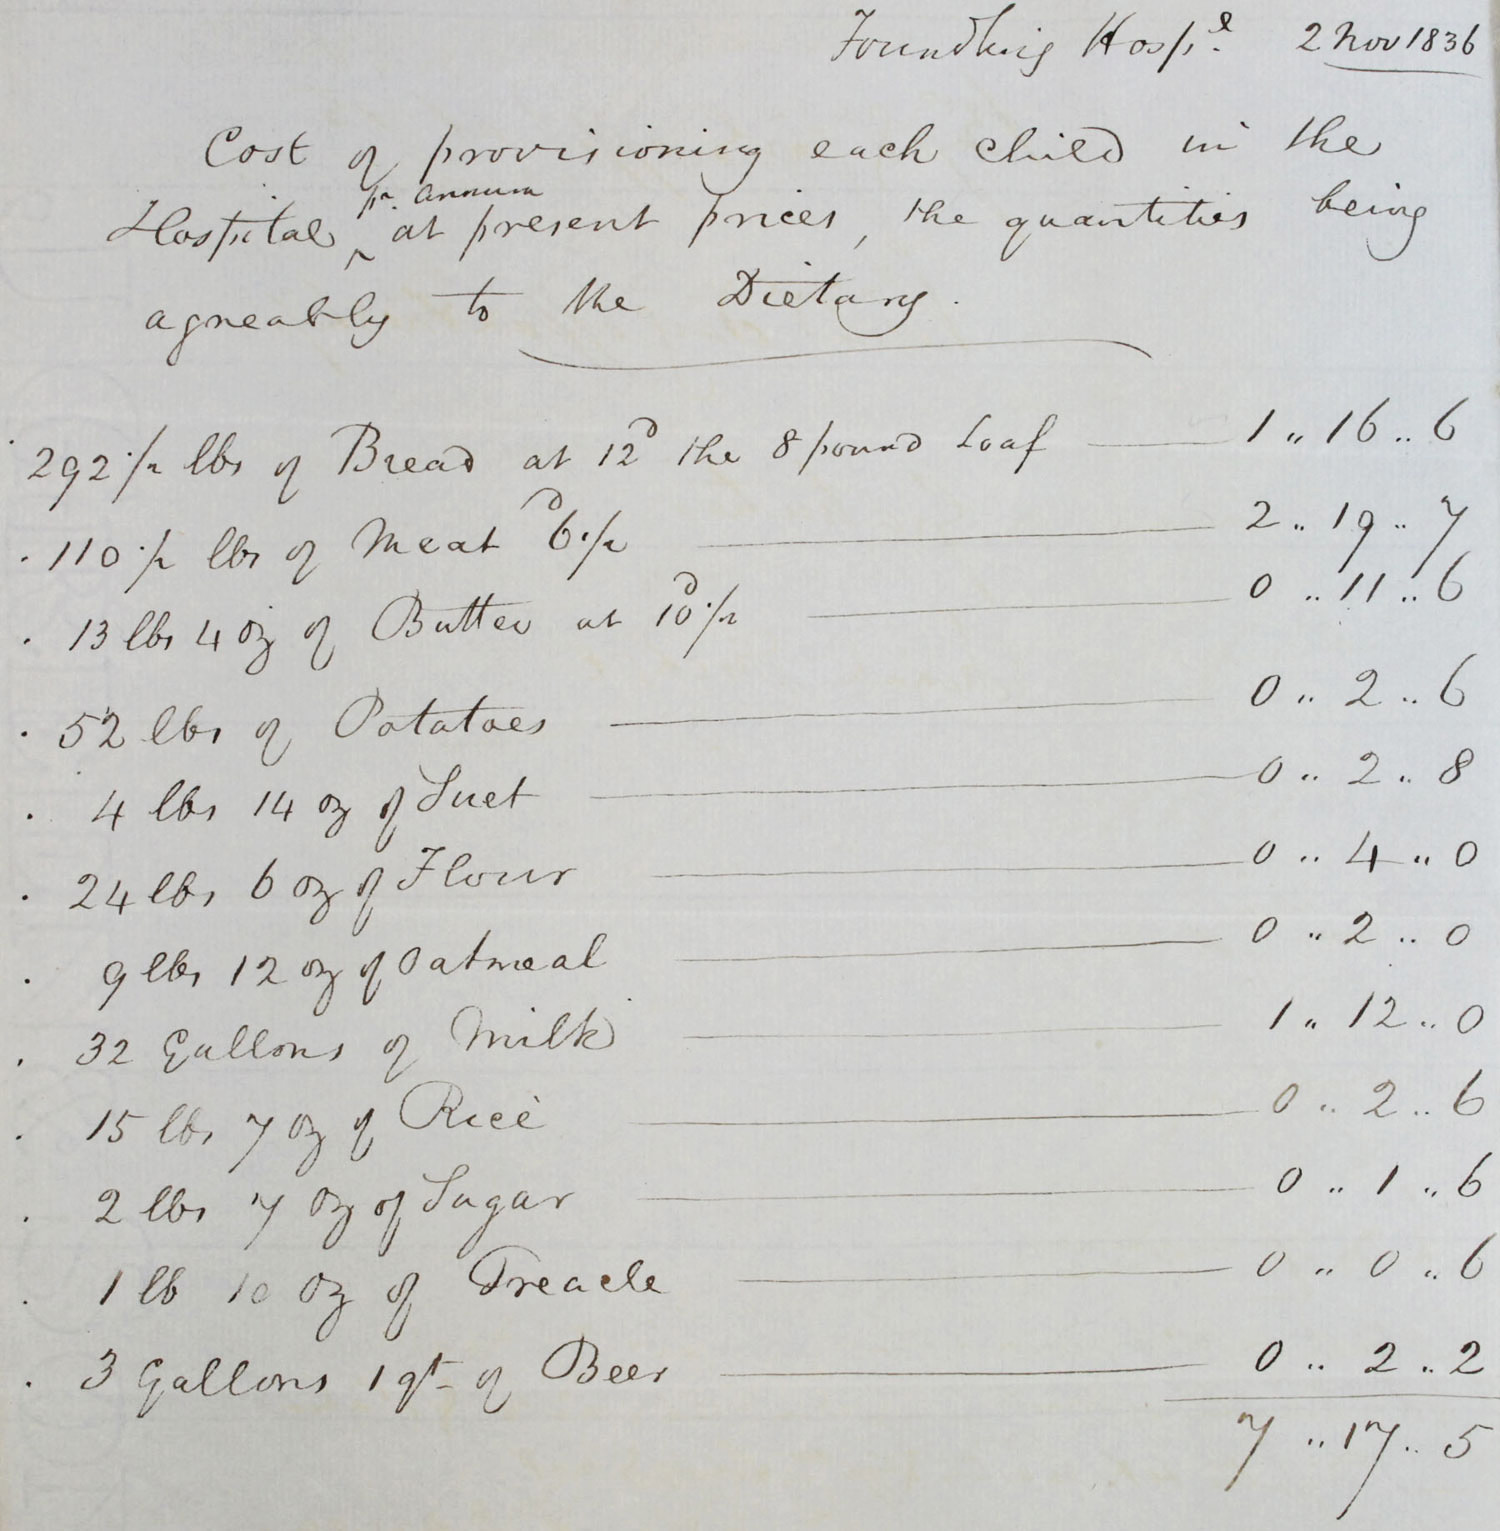 Foundling Hospl. 2 Nov 1836
Cost of provisioning each child in the
pr. annum
Hospital ‸ at present prices, the quantities being
agreeably to the Dietary.
292 1/2 lbs of Bread at 12d the 8 pound Loaf — 1 .. 16 .. 6
110 1/2 lbs of Meat 6d 1/2 — 2 .. 19 .. 7
13 lbs 4 oz of Butter at 10d 1/2 — 0 .. 11 .. 6
52 lbs of Potatoes — 0 .. 2 .. 6
4 lbs 14 oz of Suet — 0 .. 2 .. 8
24 lbs 6 oz of Flour — 0 .. 4 .. 0
9 lbs 12 oz of Oatmeal — 0 .. 2 .. 0
32 Gallons of Milk — 1 .. 12 .. 0
15 lbs 7 oz of Rice — 0 .. 2 .. 6
2 lbs 7 oz of Sugar — 0 .. 1 .. 6
1 lb 10 oz of Treacle — 0 .. 0 .. 6
3 Gallons 1 qt of Beer — 0 .. 2 .. 2
7 .. 17 .. 5